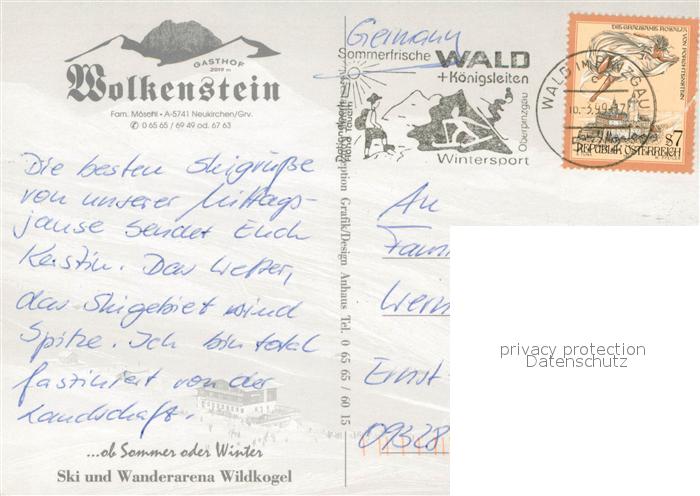 GASTHOF
2019 m
Wolkenstein
Fam. Mösenl • A-5741 Neukirchen/Grv.
✆ 0 65 65 / 69 49 od. 67 63
Die besten Skigrüße
von unserer Mittags-
jause sendet Euch
Kerstin. Das Wetter,
das Skigebiet sind
Spitze. Ich bin total
fasziniert von der
Landschaft.
...ob Sommer oder Winter
Ski und Wanderarena Wildkogel
Grafik/Design Anhaus Tel. 0 65 65 / 60 15
Germany
Sommerfrische WALD
+Königsleiten
Oberpinzgau
Wintersport
WALD IM PINZGAU
DIE GRAUSAME ROSALIA
VON FORCHTENSTEIN
S7
REPUBLIK ÖSTERREICH
An
Fam
Wern
Ernst
09328
privacy protection
Datenschutz